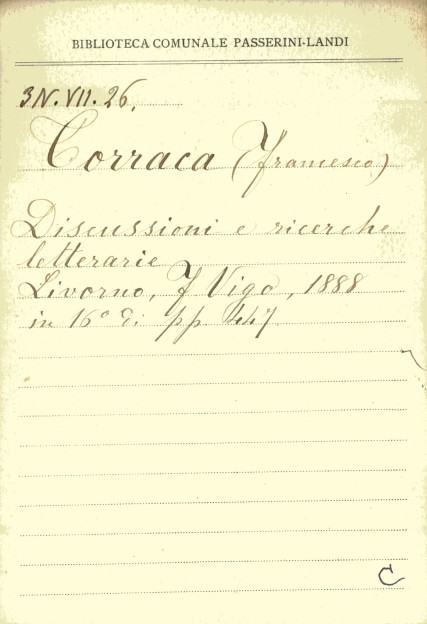 BIBLIOTECA COMUNALE PASSERINI-LANDI
3N.VII.26.
Torraca (Francesco)
Discussioni e ricerche
letterarie
Livorno, F Vigo, 1888
in 16° di pp 447
C